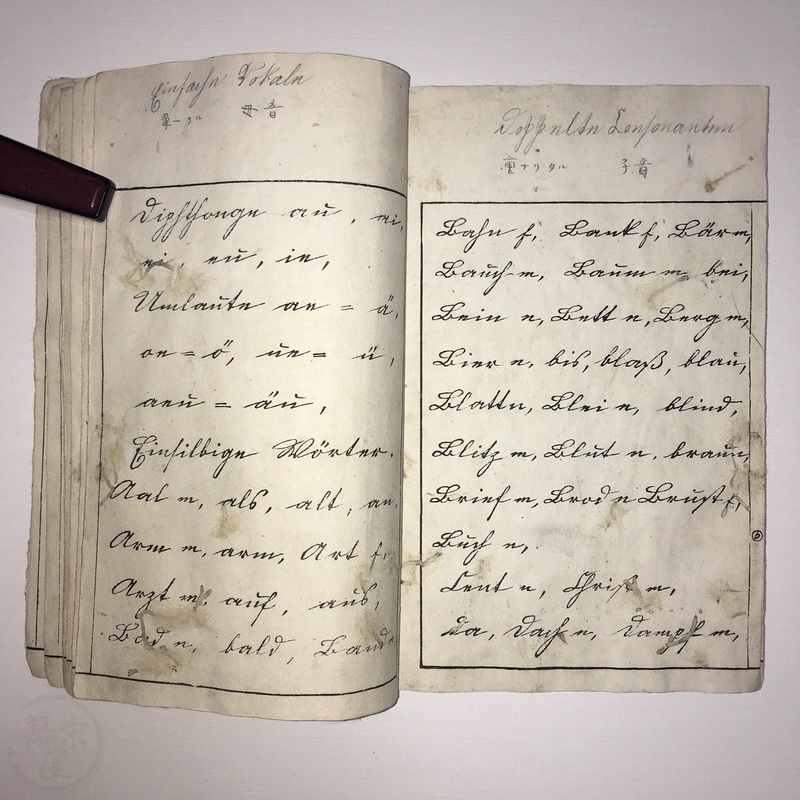 Einfache Vokale
單一ナル 母音
Diphthonge au, ai,
ei, eu, ie,
Umlaute ae = ä,
oe = ö, ue = ü,
aeu = äu,
Einsilbige Wörter.
Aal m, als, alt, an,
Arm m, arm, Art f,
Arzt m, auf, aus,
Bad n, bald, Band
Doppelte Consonanten
重ナリタル 子音
Bahn f, Bank f, Bär m,
Bauch m, Baum m bei,
Bein n, Bett n, Berg m,
Bier n, bis, blaß, blau,
Blatt n, Blei n, blind,
Blitz m, Blut n, braun,
Brief m, Brod n Brust f,
Buch n,
Cent n, Christ m,
Da, Dach n, Dampf m,